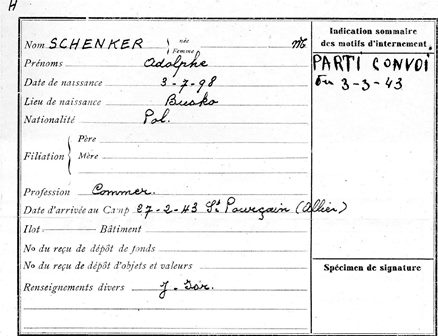 H
Nom SCHENKER née Femme M
Prénoms Adolphe
Date de naissance 3-7-98
Lieu de naissance Busko
Nationalité Pol.
Filiation
Père
Mère
Profession Commer.
Date d'arrivée au Camp 27-2-43 St Pourçain (Allier)
Ilot Bâtiment
No du reçu de dépôt de fonds
No du reçu de dépôt d'objets et valeurs
Renseignements divers
Indication sommaire
des motifs d'internement.
PARTI CONVOI
du 3-3-43
Spécimen de signature